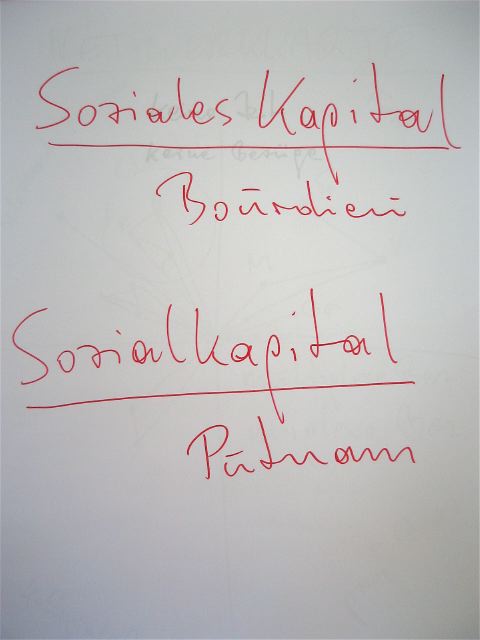 Soziales Kapital
Bourdieu
Sozialkapital
Putnam